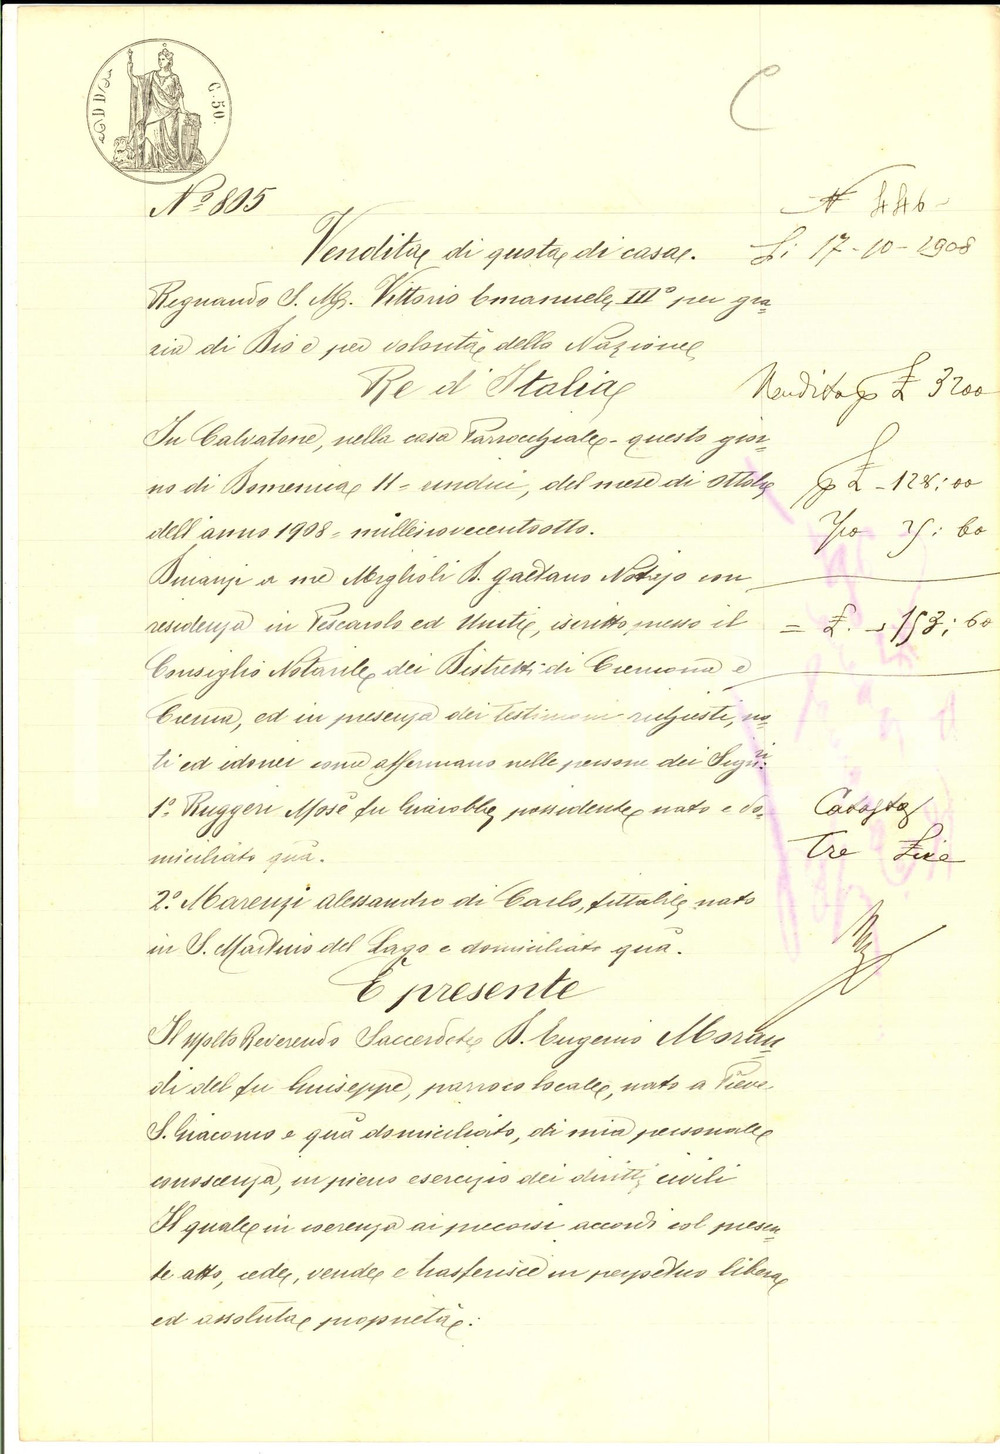 C. 50.
C
Nº 805
N 446
Vendita di quota di casa.
Li 17-10-1908
Regnando S. M. Vittorio Emanuele IIIº per gra-
zia di Dio e per volontà della Nazione
Re d'Italia
Vendita £ 3200
In Calvatone, nella casa Parrocchiale - questo gior-
no di Domenica 11 = undici, del mese di Ottobre
£ - 128:00
dell'anno 1908 = millenovecentootto.
1/10 25:60
Dinanzi a me Miglioli D. Gaetano Notajo con
residenza in Pescarolo ed Uniti, iscritto presso il
= £. 153:60
Consiglio Notarile dei Distretti di Cremona e
Crema, ed in presenza dei testimoni richiesti, no-
ti ed idonei come affermano nelle persone dei Signri:
1º Ruggeri Mosè fu possidente nato e do-
Catasto
miciliato quà.
Tre Lire
2º Marenzi Alessandro di Carlo, fittabile nato
in S. Martino del Lago e domiciliato quà.
È presente
Il Molto Reverendo Sacerdote D. Eugenio Moran-
di del fu Giuseppe, parroco locale, nato a Pieve
S. Giacomo e quà domiciliato, di mia personale
conoscenza, in pieno esercizio dei diritti civili
Il quale in coerenza ai precorsi accordi col presen-
te atto, cede, vende e trasferisce in perpetuo libera
ed assoluta proprietà: